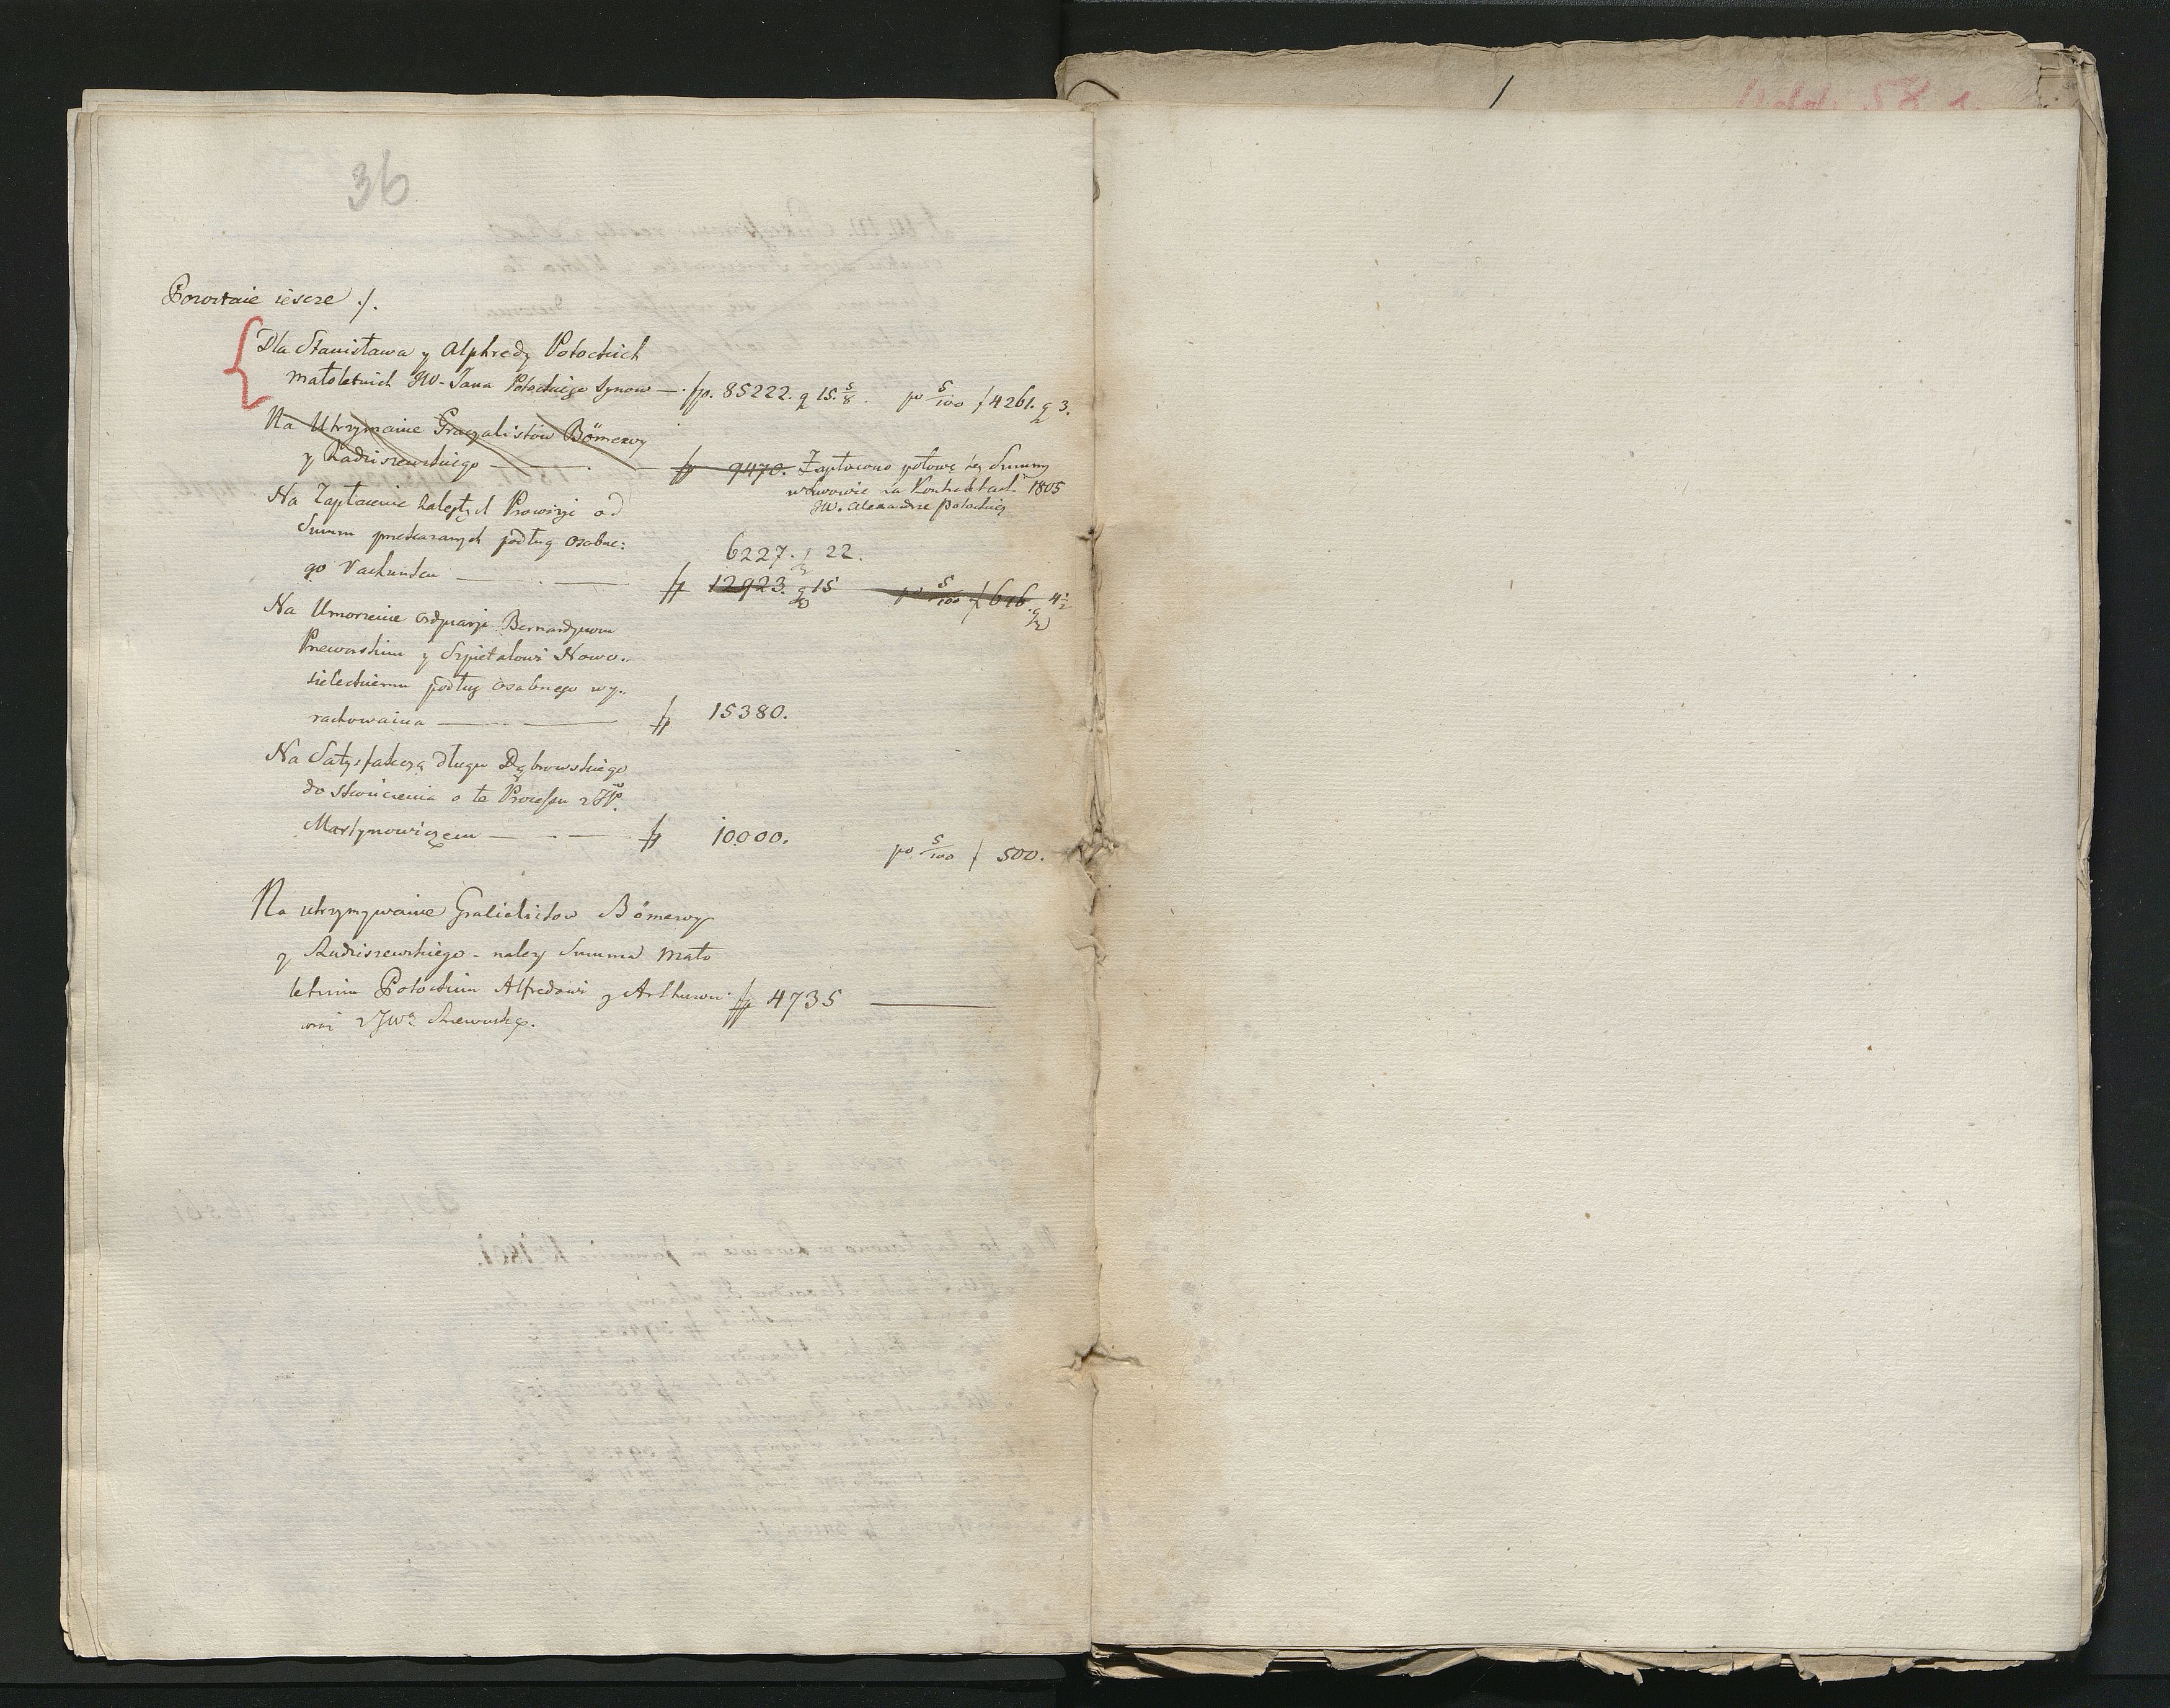 36
Pozostaie iescze ./.
Dla Stanisława y Alphredy Potockich
małoletnich JW. Jana Potockiego Synow — . fp. 85222. g 15. 5/8. po 5/100 f 4261. g 3.
Na Utrzymanie Gracyalistów Bömerwy
y Radziszewskiego — . — fp 9470. Zapłacono połowę tey Summy
w Lwowie na Kontraktach 1805
JW. Alexandrze Potockiey
Na Zapłacenie zaległych Prowizyi od
Summ przekazanych podług osobne:
6227. g 22.
go Rachunku — . — fp 12923. g 15 po 5/100 f 646. g 4 1/2
Na Umorzenie ordynaryi Bernardynom
Przeworskim y Szpitalowi Nowo„
sieleckiemu podług osobnego wy„
rachowania — .. — fp 15380.
Na Satysfakcyą długu Dąbrowskiego
do skończenia o te Processu z JP.
Martynowiczem — . — fp 10000. po 5/100 f 500.
Na utrzymywanie Gralialistow Bömerwy
y Radziszewskiego - należy Summa mało
letnim Potockim Alfredowi y Arthurowi fp 4735 —
z JW
1